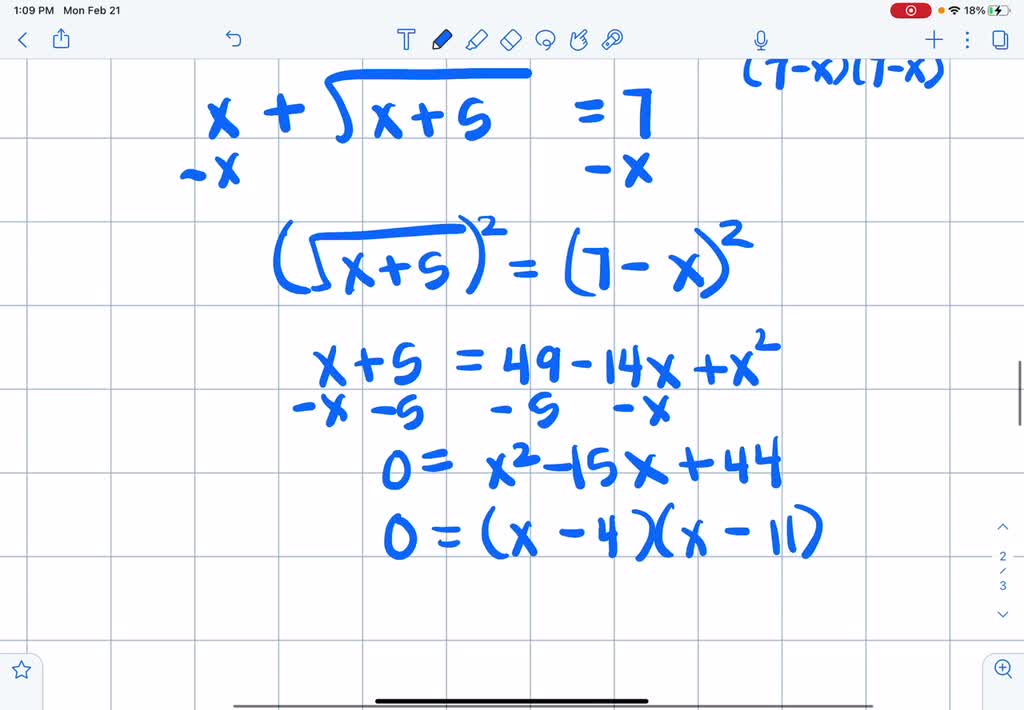 1:09 PM Mon Feb 21
18%
T
(7-x)(7-x)
x + √x+5 = 7
-x - x
(√x+5)² = (7 - x)²
x + 5 = 49 - 14x + x²
-x -5 - 5 - x
0 = x² -15x + 44
0 = (x - 4)(x - 11)
2
/
3